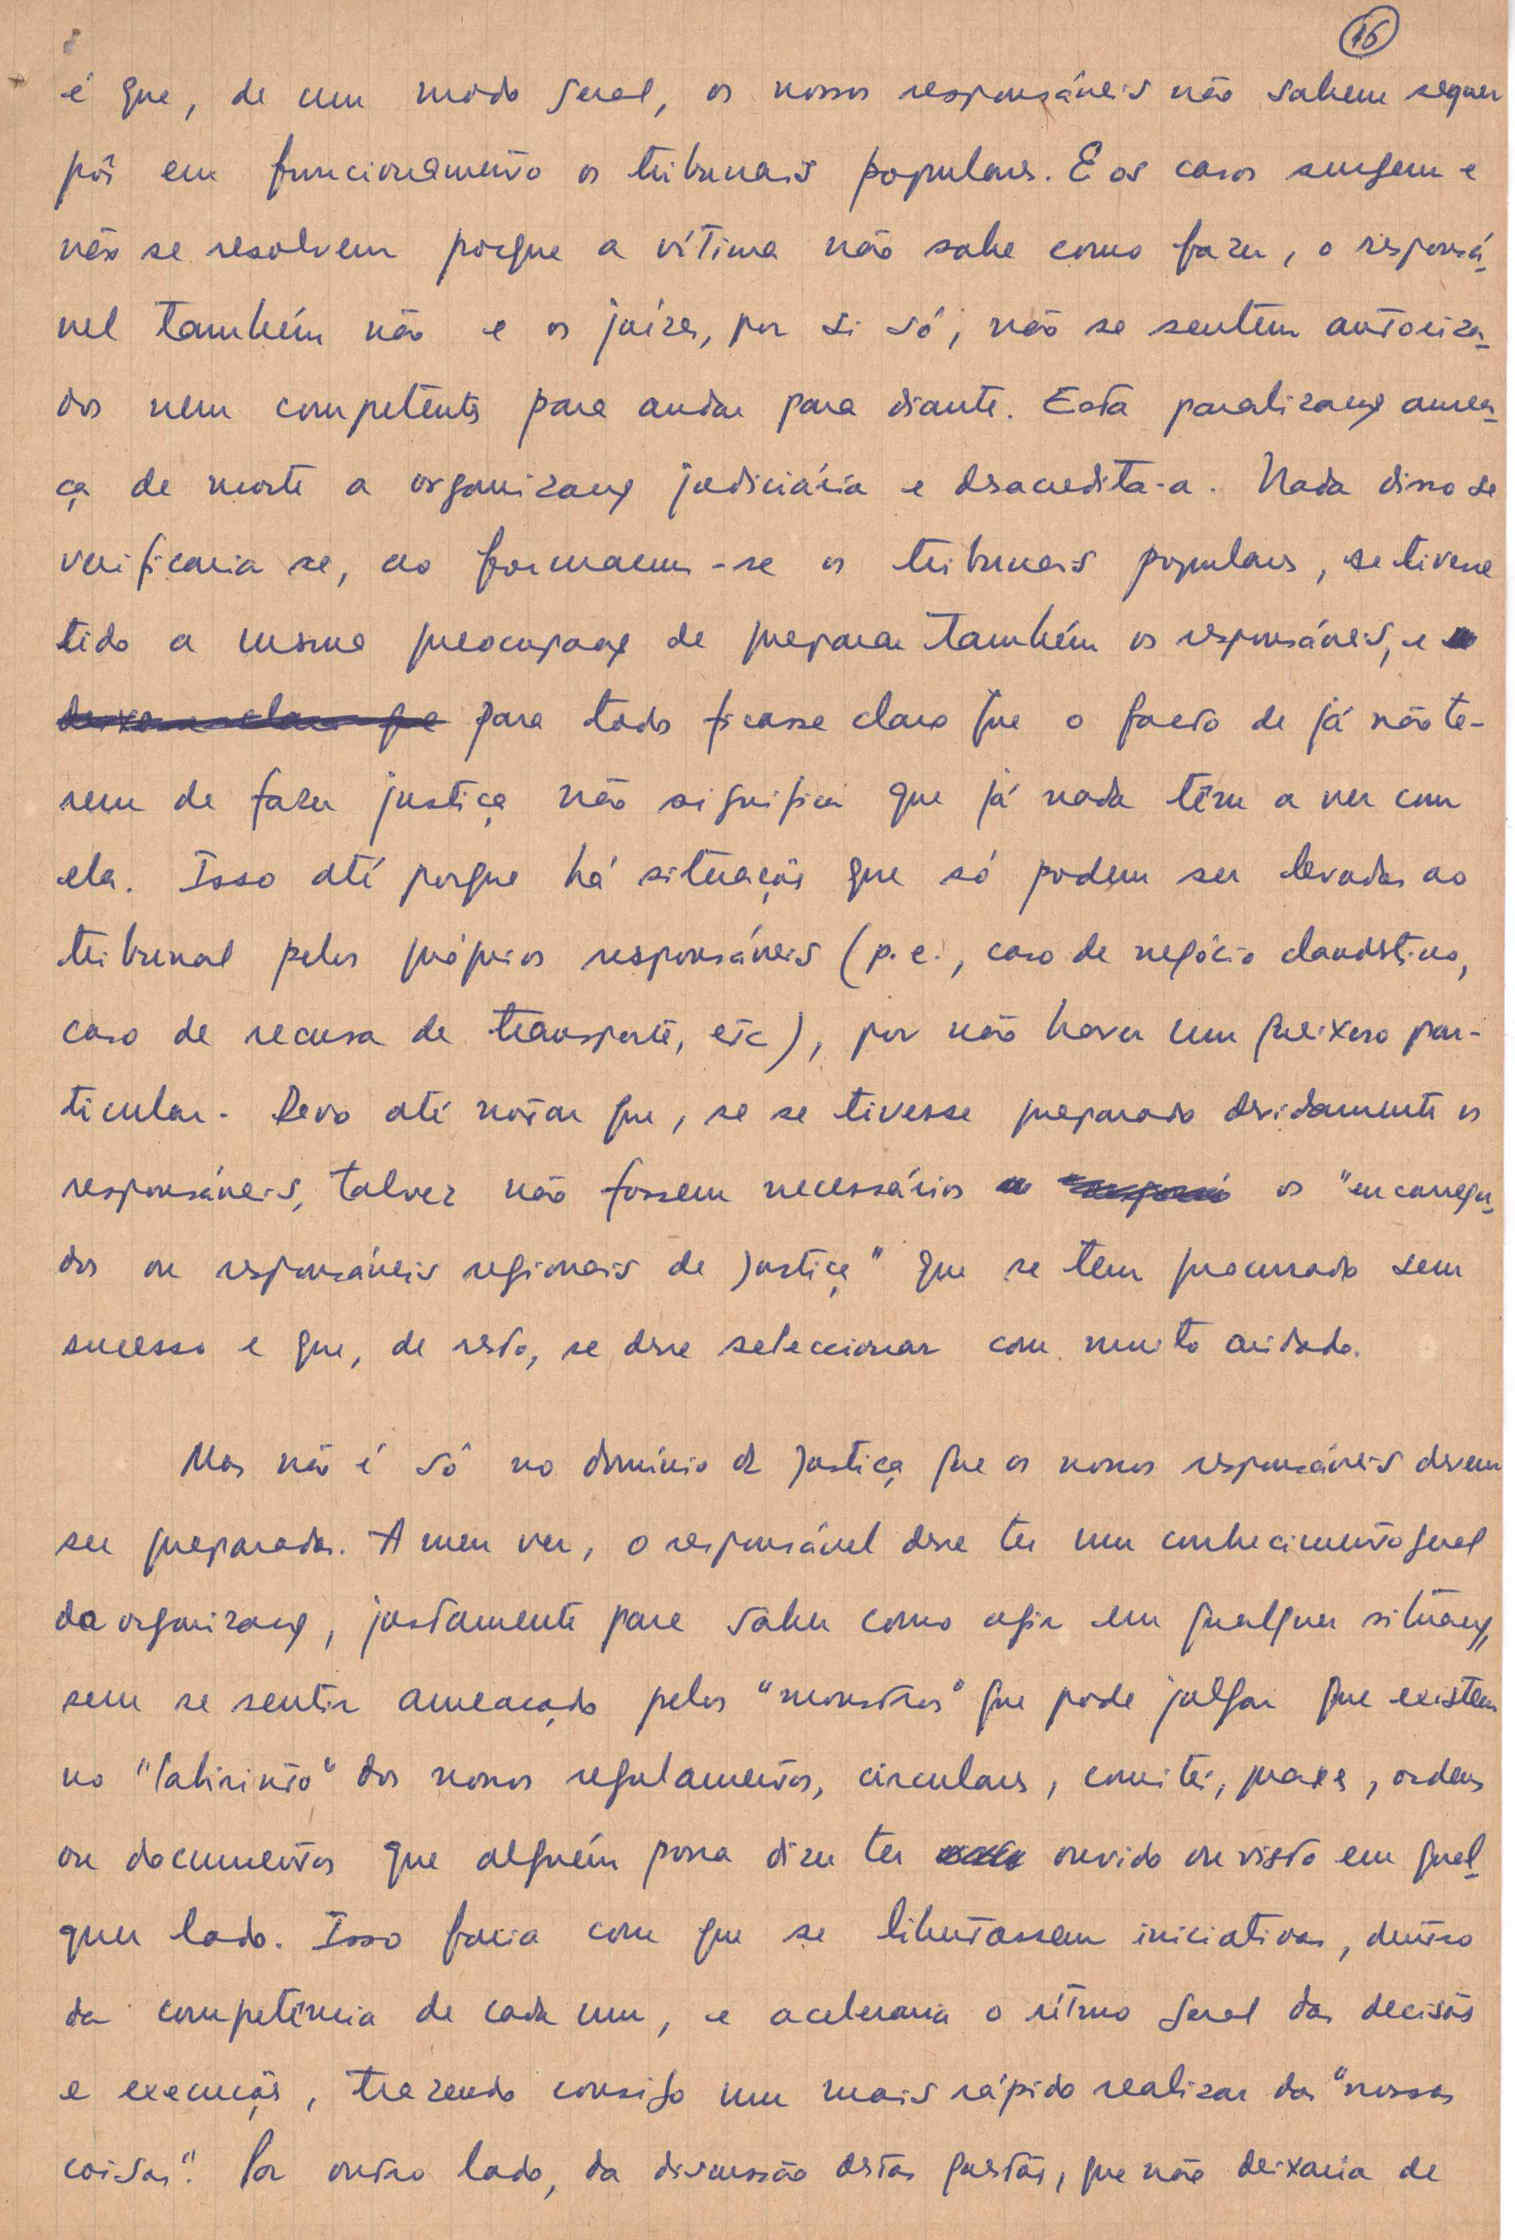 16
é que, de um modo geral, os nossos responsáveis não sabem sequer
pôr em funcionamento os tribunais populares. E os casos surgem e
não se resolvem porque a vítima não sabe como fazer, o responsá-
vel também não e os juízes, por si só, não se sentem autoriza-
dos nem competentes para andar para diante. Esta paralização amea-
ça de morte a organização judiciária e desacredita-a. Nada disso se
verificaria se, ao formarem-se os tribunais populares, se tivesse
tido a mesma preocupação de preparar também os responsáveis, e
deixasse claro que para todos ficasse claro que o facto de já não te-
rem de fazer justiça não significa que já nada têm a ver com
ela. Isso até porque há situações que só podem ser levadas ao
tribunal pelos próprios responsáveis (p.e., caso de negócio clandestino,
caso de recusa de transporte, etc), por não haver um queixoso par-
ticular. Devo até notar que, se se tivesse preparado devidamente os
responsáveis, talvez não fossem necessários os "encarrega-
dos ou responsáveis regionais de Justiça" que se tem procurado sem
sucesso e que, de resto, se deve seleccionar com muito cuidado.
Mas não é só no domínio da Justiça que os nossos responsáveis devem
ser preparados. A meu ver, o responsável deve ter um conhecimento geral
da organização, justamente para saber como agir em qualquer situação,
sem se sentir ameaçado pelos "monstros" que pode julgar que existem
no "labirinto" dos nossos regulamentos, circulares, comités, praxes, ordens
ou documentos que alguém possa dizer ter ouvido ou visto em qual-
quer lado. Isso faria com que se libertassem iniciativas, dentro
da competência de cada um, e aceleraria o rítmo geral das decisões
e execuções, trazendo consigo um mais rápido realizar das "nossas
coisas". Por outro lado, da discussão destas questões, que não deixaria de